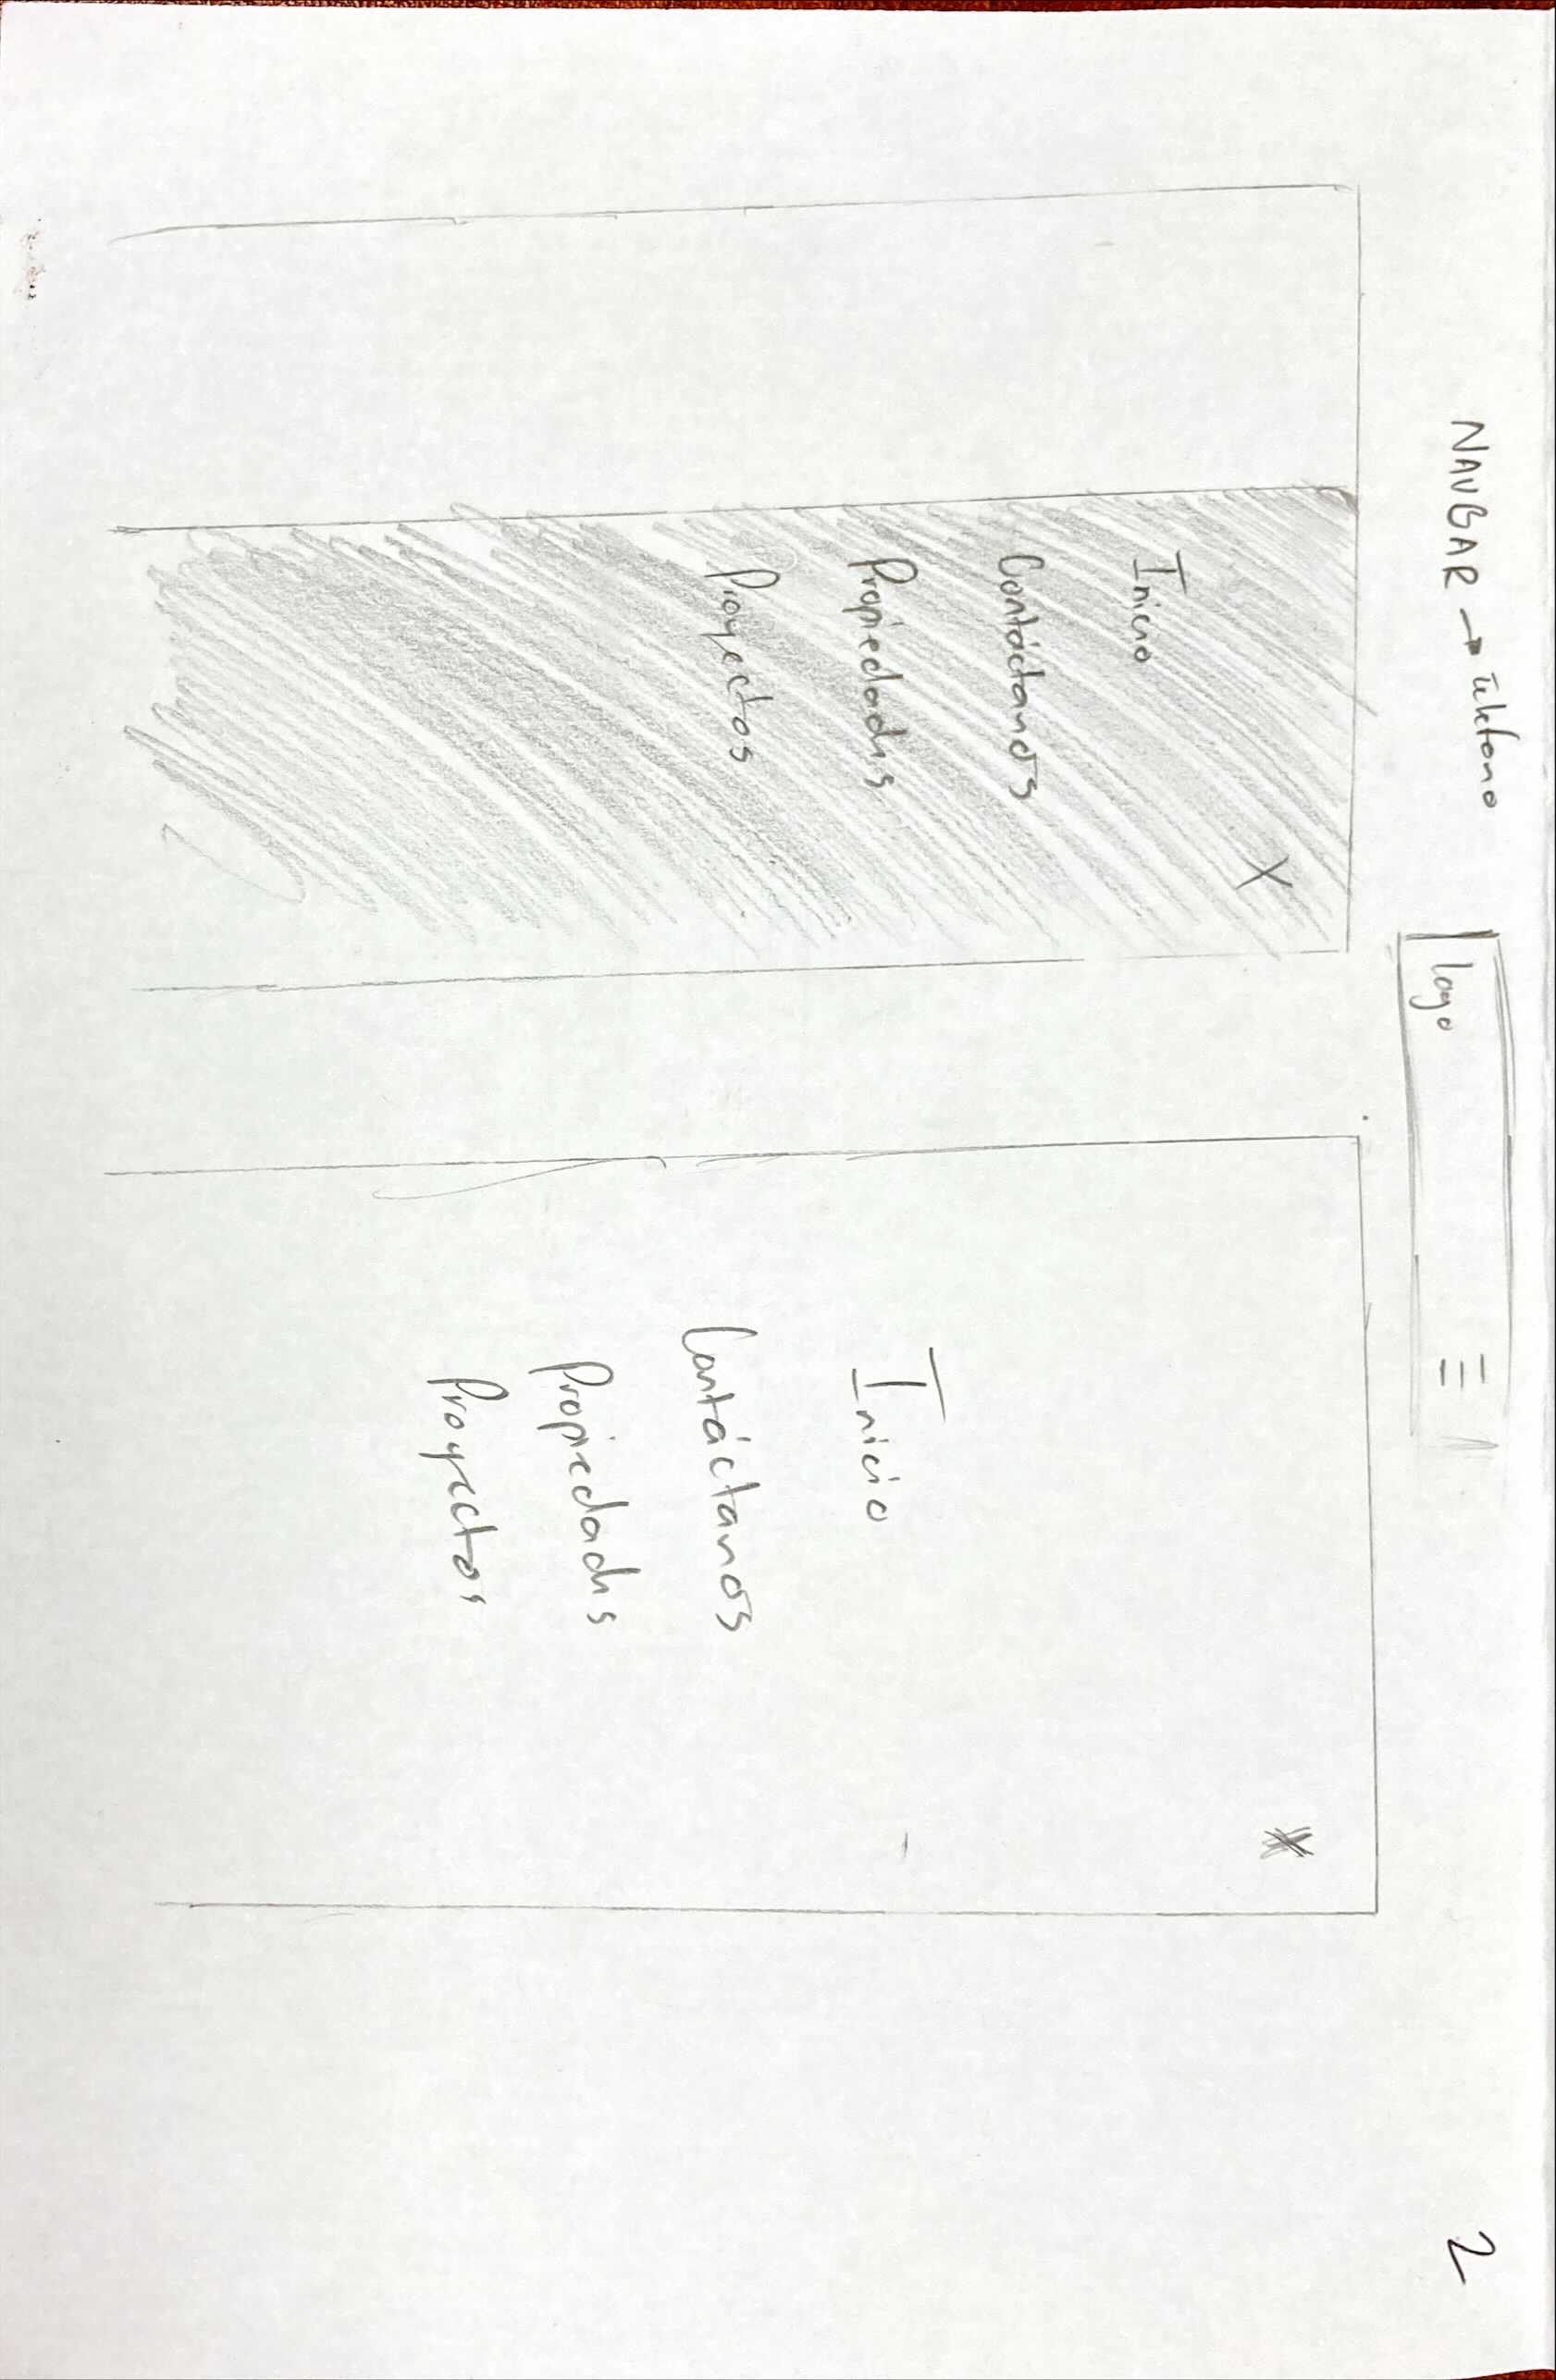 NAVBAR → teléfono
logo
2
X
Inicio
Contáctanos
Propiedades
Proyectos
X
Inicio
Contáctanos
Propiedades
Proyectos